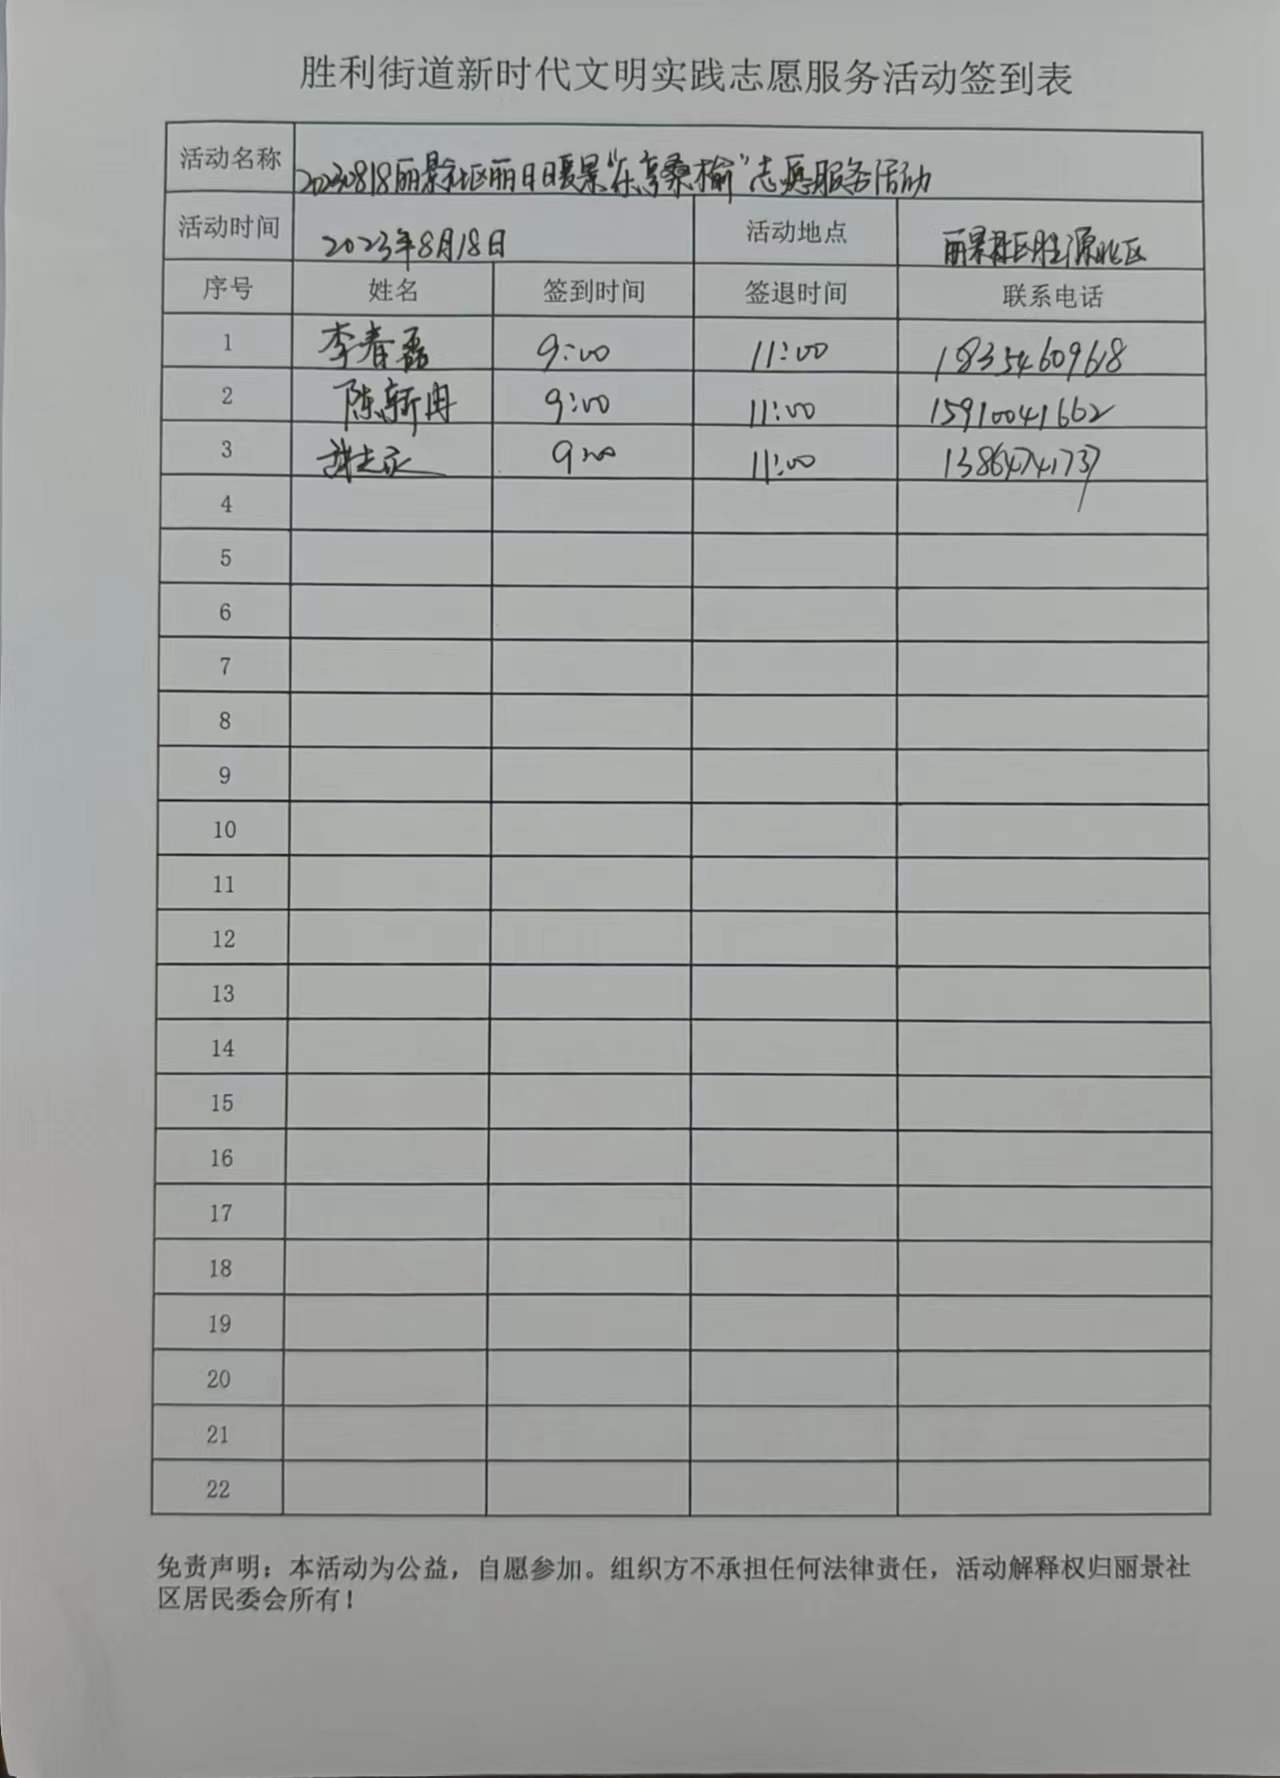 胜利街道新时代文明实践志愿服务活动签到表
活动名称 20230818丽景社区丽日暖景“乐享桑榆”志愿服务活动
活动时间 2023年8月18日 活动地点 丽景社区胜源北区
序号 姓名 签到时间 签退时间 联系电话
1 李春磊 9:00 11:00 18354609618
2 陈新冉 9:00 11:00 15910041662
3 9:00 11:00
4
5
6
7
8
9
10
11
12
13
14
15
16
17
18
19
20
21
22
免责声明：本活动为公益，自愿参加。组织方不承担任何法律责任，活动解释权归丽景社
区居民委会所有！